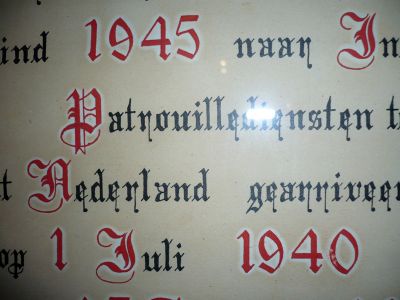 ind 1945 naar In
Patrouillediensten t
t Nederland gearriveer
op 1 Juli 1940